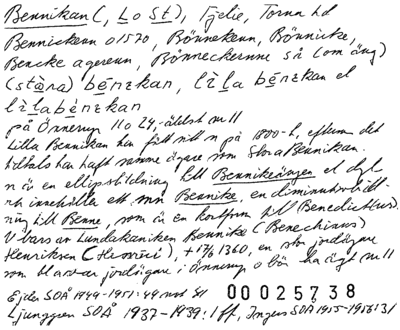 Bennikan (, L o St), Fjelie, Torna hd
Bennickenn o1570, Bönnekenn, Bönnicke,
Bencke ageren, Bönneckernne så (om äng)
(stàra) bénzkan, lìla bénzkan el
lìlabénzkan
på Önnerup 11 o 24, äldst nu 11
Lilla Bennikan har fått sitt n på 1800-t, eftersom det
tidtals har haft samma ägare som Stora Bennikan.
n är en ellipsbildning till Bennikeängen el dyl
och innehåller ett mn Bennike, en diminutivbild-
ning till Benne, som är en kortform till Benedictus.
V bars av Lundakaniken Bennike (Benechinus)
Henriksen (Henrici), +17/6 1360, en stor jordägare
som bl a var jordägare i Önnerup o bör ha ägt nu 11
Ejder SOÅ 1949-1951: 49 not 81
00025738
Ljunggren SOÅ 1937-1939: 1 ff, Ingers SOÅ 1955-1956: 31